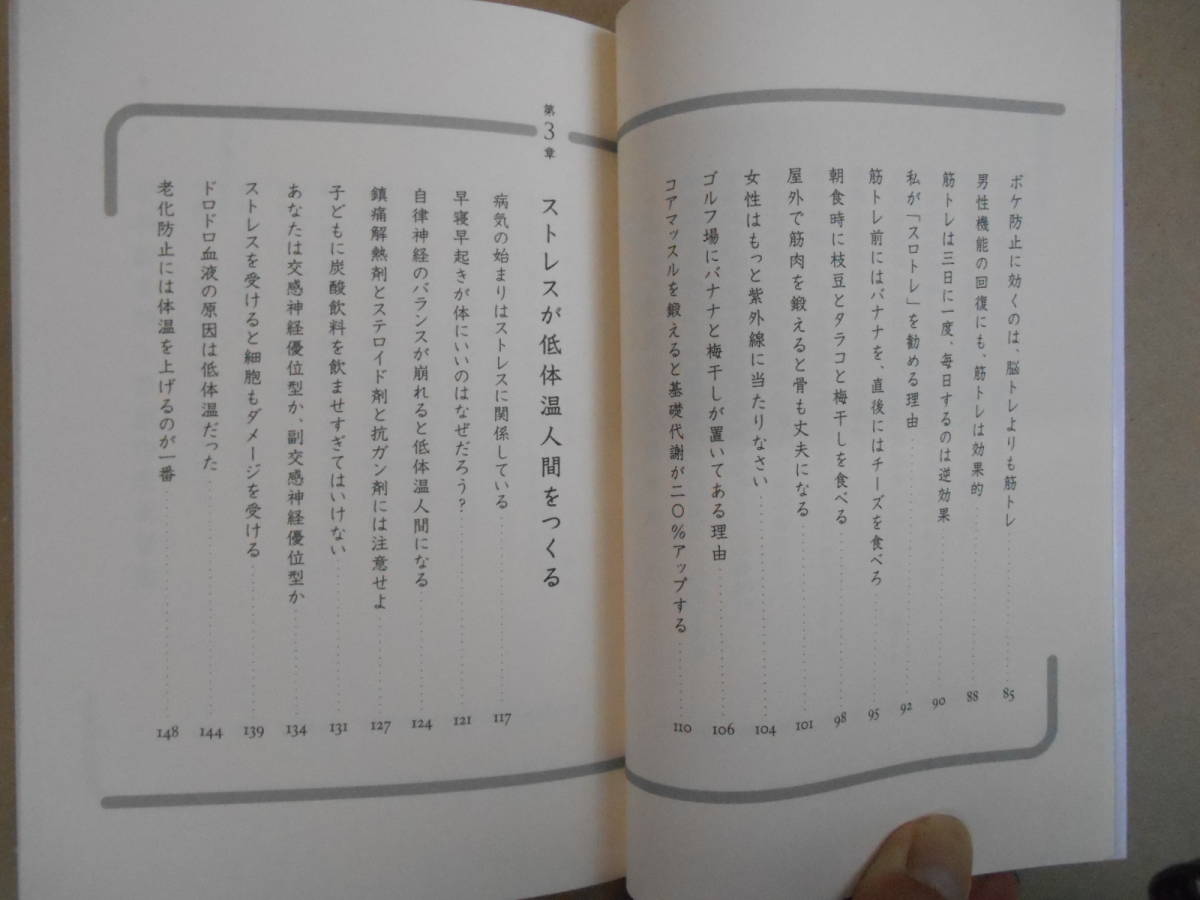 ボケ防止に効くのは、脳トレよりも筋トレ 85
男性機能の回復にも、筋トレは効果的 88
筋トレは三日に一度、毎日するのは逆効果 90
私が「スロトレ」を勧める理由 92
筋トレ前にはバナナを、直後にはチーズを食べろ 95
朝食時に枝豆とタラコと梅干しを食べる 98
屋外で筋肉を鍛えると骨も丈夫になる 101
女性はもっと紫外線に当たりなさい 104
ゴルフ場にバナナと梅干しが置いてある理由 106
コアマッスルを鍛えると基礎代謝が二〇%アップする 110
第3章 ストレスが低体温人間をつくる
病気の始まりはストレスに関係している 117
早寝早起きが体にいいのはなぜだろう? 121
自律神経のバランスが崩れると低体温人間になる 124
鎮痛解熱剤とステロイド剤と抗ガン剤には注意せよ 127
子どもに炭酸飲料を飲ませすぎてはいけない 131
あなたは交感神経優位型か、副交感神経優位型か 134
ストレスを受けると細胞もダメージを受ける 139
ドロドロ血液の原因は低体温だった 144
老化防止には体温を上げるのが一番 148